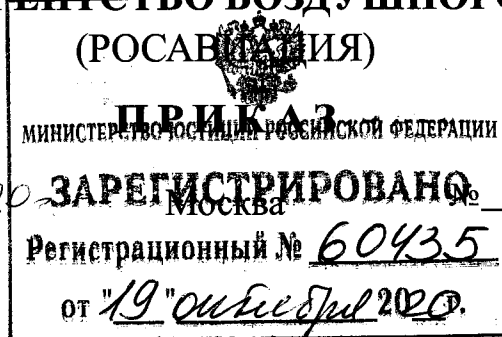 ЕНТСТВО ВОЗДУШНОГО
(РОСАВИАЦИЯ)
ПРИКАЗ
МИНИСТЕРСТВО ЮСТИЦИИ РОССИЙСКОЙ ФЕДЕРАЦИИ
ЗАРЕГИСТРИРОВАНО
Москва №
Регистрационный № 60435
от "19" октября 2020 г.